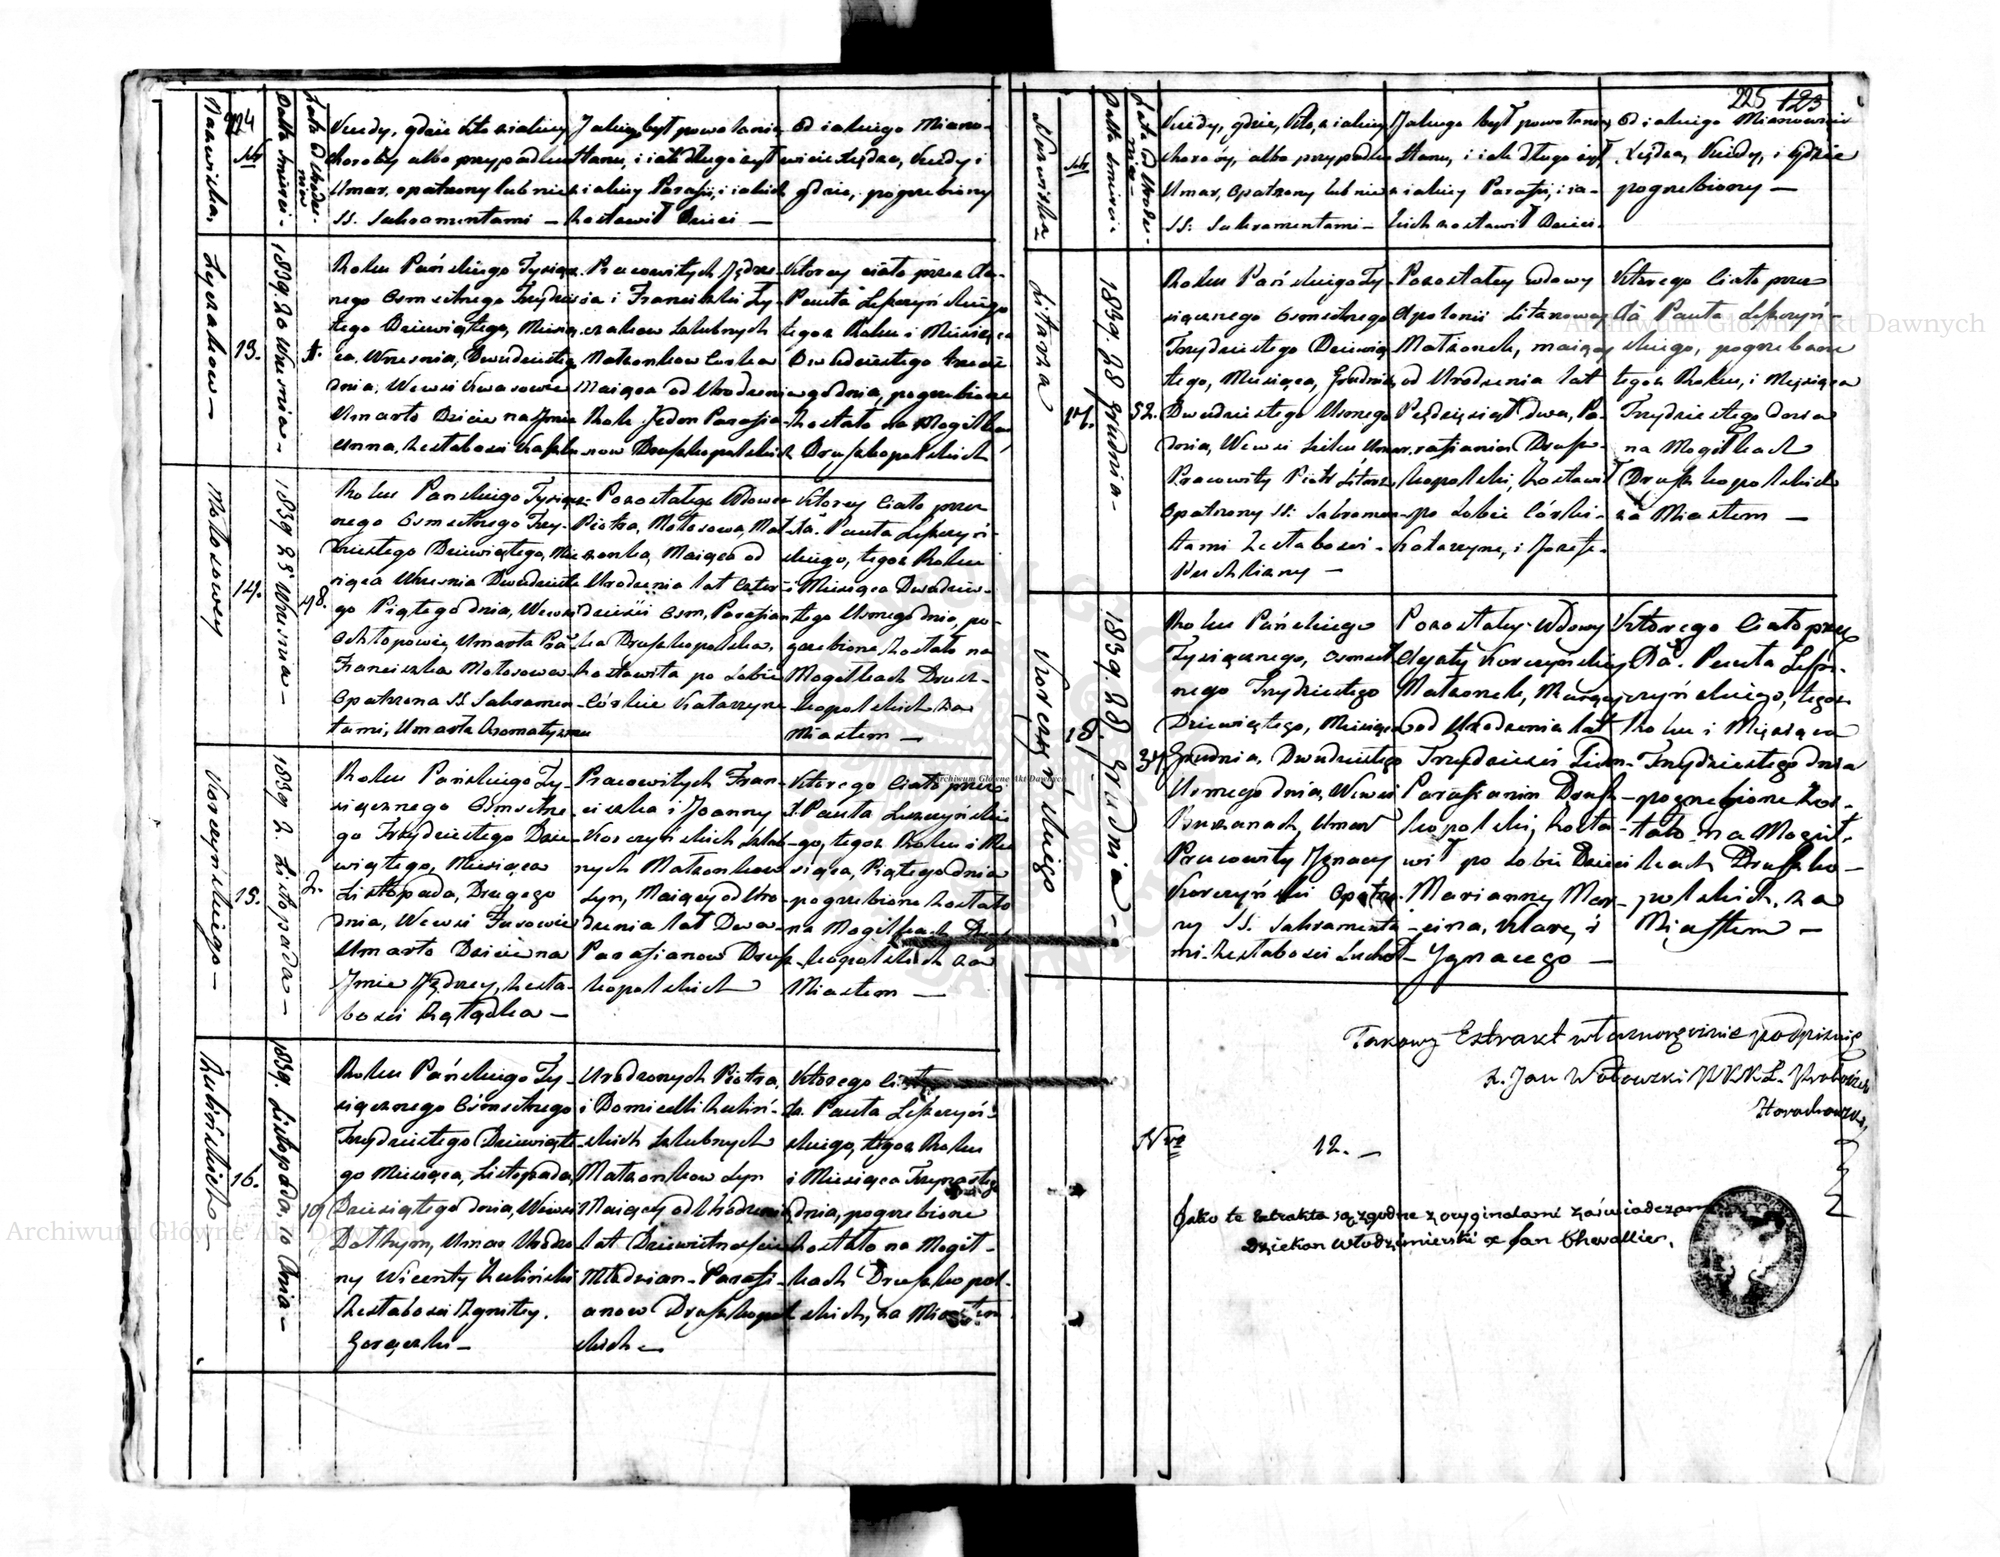 224
Nazwiska.
№
Data śmierci.
Lata Urodzenia
Kiedy, gdzie kto z jakiey
choroby albo przypadku
Umar, opatrzony lub nie
SS. Sakramentami —
Jakiey był powołania
Stanu, i iak długo żył
z iakiey Parafii, i iakich
zostawił Dzieci —
Od iakiego Miano-
wicie Xiędza, Kiedy i
gdzie, pogrzebiony
Łyczakow —
13.
1839. 20 Wrzesnia —
1.
Roku Pańskiego Tysiącz-
nego Osmsetnego Trzydzies-
tego Dziewiątego, Miesią-
ca, Wrzesnia, Dwudziestego
dnia, Wewsi Kwasowie
Umarło Dziecie na Jmie
Anna, zestabosci Kaszlu
Pracowitych Jędrze-
ia i Franciszki Ły-
czakow Szlubnych
Małżonkow Corka
Maiąca od Urodzenia
Rok Jeden Parafia-
now Druszkopolskich
Ktorey ciało przez Xa-
Pawła Leszczyńskiego
tegoż Roku i Miesiąca
Dwudziestego trzecie-
go dnia, pogrzebione
zostało na Mogiłkach
Druszkopolskich
Mołosowey
14.
1839 25 Wrzesnia —
48.
Roku Panskiego Tysiącz-
nego Osmsetnego Trzy-
dziestego Dziewiątego, Mie-
siąca Wrzesnia Dwudzieste-
go Piątego dnia, Wewsi
Ochłopowey Umarła Pra-
Franciszka Mołosowa
Opatrzona SS Sakramen-
tami, Umarła
Pozostałego Wdowca
Piotra, Mołosowa, Mał-
żonka, Maiąca od
Urodzenia lat Czter-
dziesci Osm, Parafian-
ka Druszkopolska,
zostawiła po sobie
Córkie Katarzyne
Ktorey Ciało przez
Xa. Pawła Leszczyń-
skiego, tegoż Roku
i Miesiąca Dwudzies-
tego Usmego dnia, po-
grzebione zostało na
Mogiłkach Drusz-
kopolskich za
Miastem —
Korczyńskiego —
15.
1839 2. Listopada —
2.
Roku Pańskiego Ty-
siącznego Osmsetne-
go Trzydziestego Dzie-
wiątego, Miesiąca
Listopada, Drugego
dnia, Wewsi
Umarło Dziecie na
Jmie Jędrzey, zesta-
bosci Zołądka —
Pracowitych Fran-
ciszka i Joanny
Korczyńskich Szlub-
nych Małżonkow
Syn, Maiącey od Uro-
dzenia lat Dwa —
Parafianow Drusz-
kopolskich
Ktorego Ciało przez
X. Pawła Leszczyńskie-
go, tegoż Roku i Mie-
siąca, Piątego dnia
pogrzebione zostało
na Mogiłkach Drusz-
kopolskich za
Miastem —
Zulinskich —
16.
1839. Listopada, 10 Dnia —
19
Roku Pańskiego Ty-
siącznego Osmsetnego
Trzydziestego Dziewiąte-
go Miesiąca, Listopada,
Dziesiątego dnia, Wewsi
Umar Urodzo-
ny Wicenty Zulinski
Zestabosci Zgniłey.
Gorączki —
Urodzonych Piotra,
i Domicelli Zuliń-
skich Szlubnych
Małżonkow Syn
Maiącey od Urodzenia
lat Dziewietnascie
Młodzian — Parafi-
anow Druszkopol-
skich —
Ktorego Ciało
Xa. Pawła Leszczyń-
skiego, tegoż Roku
i Miesiąca Trzynastego
dnia, pogrzebione
zostało na Mogił-
kach Druszkopol-
skich, za Miastem.
225 123
Nazwiska
№
Data śmierci
Lata Od Urodze-
nia —
Kiedy, gdzie, kto, z iakiey
choroby, albo przypadku
Umar, Opatrzony lub nie
SS: Sakramentami —
Jakiego był powołania,
Stanu, i iak długo żył,
z iakiey Parafii, i ia-
kich zostawił Dzieci.
Od iakiego Mianowicie
Xiędza, Kiedy, i Gdzie
pogrzebiony —
Litarza
17.
1839. 28 Grudnia —
52.
Roku Pańskiego Ty-
siącznego Osmsetnego
Trzydziestego Dziewią-
tego, Miesiąca, Grudnia,
Dwudziestego Usmego
dnia, Wewsi Umar,
Pracowity Piotr Litarz
Opatrzony SS: Sakramen-
tami Zestabosci —
Puchliany —
Pozostałey wdowy
Apolonii Litarzowey
Małżonek, maiący
od Urodzenia lat
Pięćdzięsiąt dwa, Pa-
rafianin Drusz-
kopolski, Zostawił
po Sobie Córki —
Katarzyne, i Jozefe —
Ktorego Ciało przez
Xa Pawła Leszczyń-
skiego, pogrzebane
tegoż Roku, i Miesiąca
Trzydziestego dnia
na Mogiłkach
Druszkopolskich
za Miastem —
Korczyńskiego
18.
1839. 28. Grudnia —
34
Roku Pańskiego
Tysiącznego, Osmset-
nego Trzydziestego
Dziewiątego, Miesiąca
Grudnia, Dwudziestego
Usmego dnia, Wewsi
Umar
Pracowity Jgnacy
Korczyński Opatrzo-
ny SS. Sakramenta-
mi. zestabosci Suchot —
Pozostałey Wdowy
Agaty Korczyńskiey
Małżonek, Maiący
od Urodzenia lat
Trzydziesci
Parafianin Drusz-
kopolski, zosta-
wił po sobie Dzieci
Marianne, Mar-
cina, Klare, i
Jgnacego —
Ktorego Ciało przez
Xa. Pawła Lesz-
czyńskiego, tegoż
Roku i Miesiąca
Trzydziestego dnia
pogrzebione zos-
tało na Mogił-
kach Druszko-
polskich, za
Miastem —
Takowy Extrakt własnoręcznie podpisuię
X. Jan Wołowski
Nro 12. —
Jako te Extrakta są zgodne z oryginałami zaświadczam
Dziekan Włodzimierski x Jan Chevallier.
Archiwum Główne Akt Dawnych
Archiwum Główne Akt Dawnych
Archiwum Główne Akt Dawnych